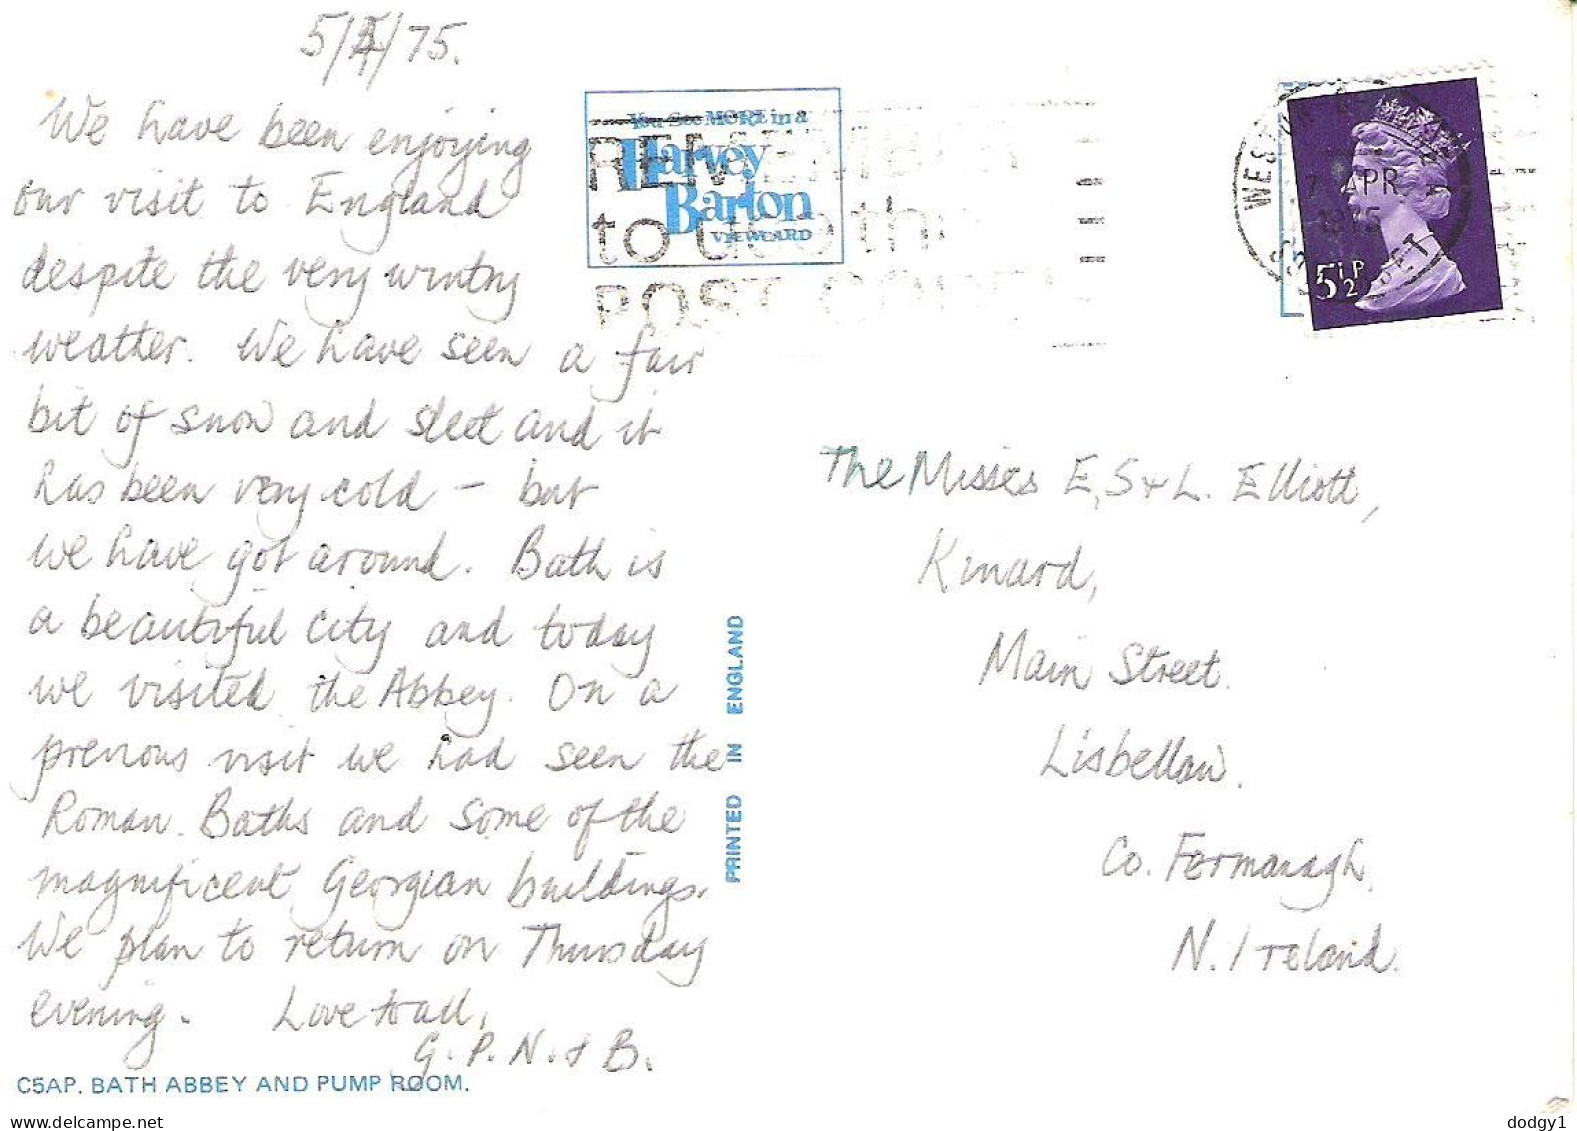 5/4/75.
We have been enjoying
our visit to England
despite the very wintry
weather. We have seen a fair
bit of snow and sleet and it
has been very cold – but
we have got around. Bath is
a beautiful city and today
we visited the Abbey. On a
previous visit we had seen the
Roman Baths and some of the
magnificent Georgian buildings.
We plan to return on Thursday
evening. Love to all,
G. P. N. & B.
C5AP. BATH ABBEY AND PUMP ROOM.
PRINTED IN ENGLAND
You See MORE in a
Harvey
Barton
VIEWCARD
REMEMBER
to use the
POST CODE
7 APR
1975
5½P
The Misses E, S & L. Elliott,
Kinard,
Main Street.
Lisbellaw.
Co. Fermanagh,
N. Ireland.
dodgy1